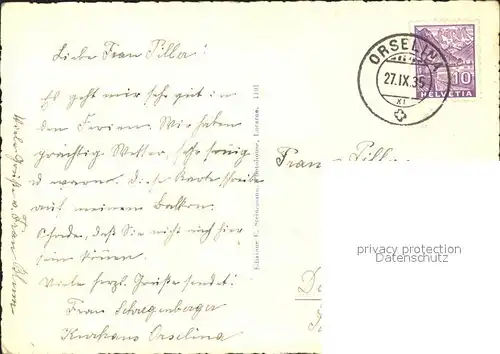 Liebe Frau Piller!
Es geht mir sehr gut in
den Ferien. Wir haben
prächtig Wetter, sehr sonnig
u. warm. Diese Karte schreibe
auf meinem Balkon.
Schade, daß Sie nicht auch hier
sein können.
Viele herzl. Grüße sendet:
Frau Schregenberger
Kurhaus Orselina
Frau Blum
Edizione E. Steinemann, Locarno. 1101
ORSELINA
27.IX.35
XI
10
HELVETIA
Frau Piller
privacy protection
Datenschutz